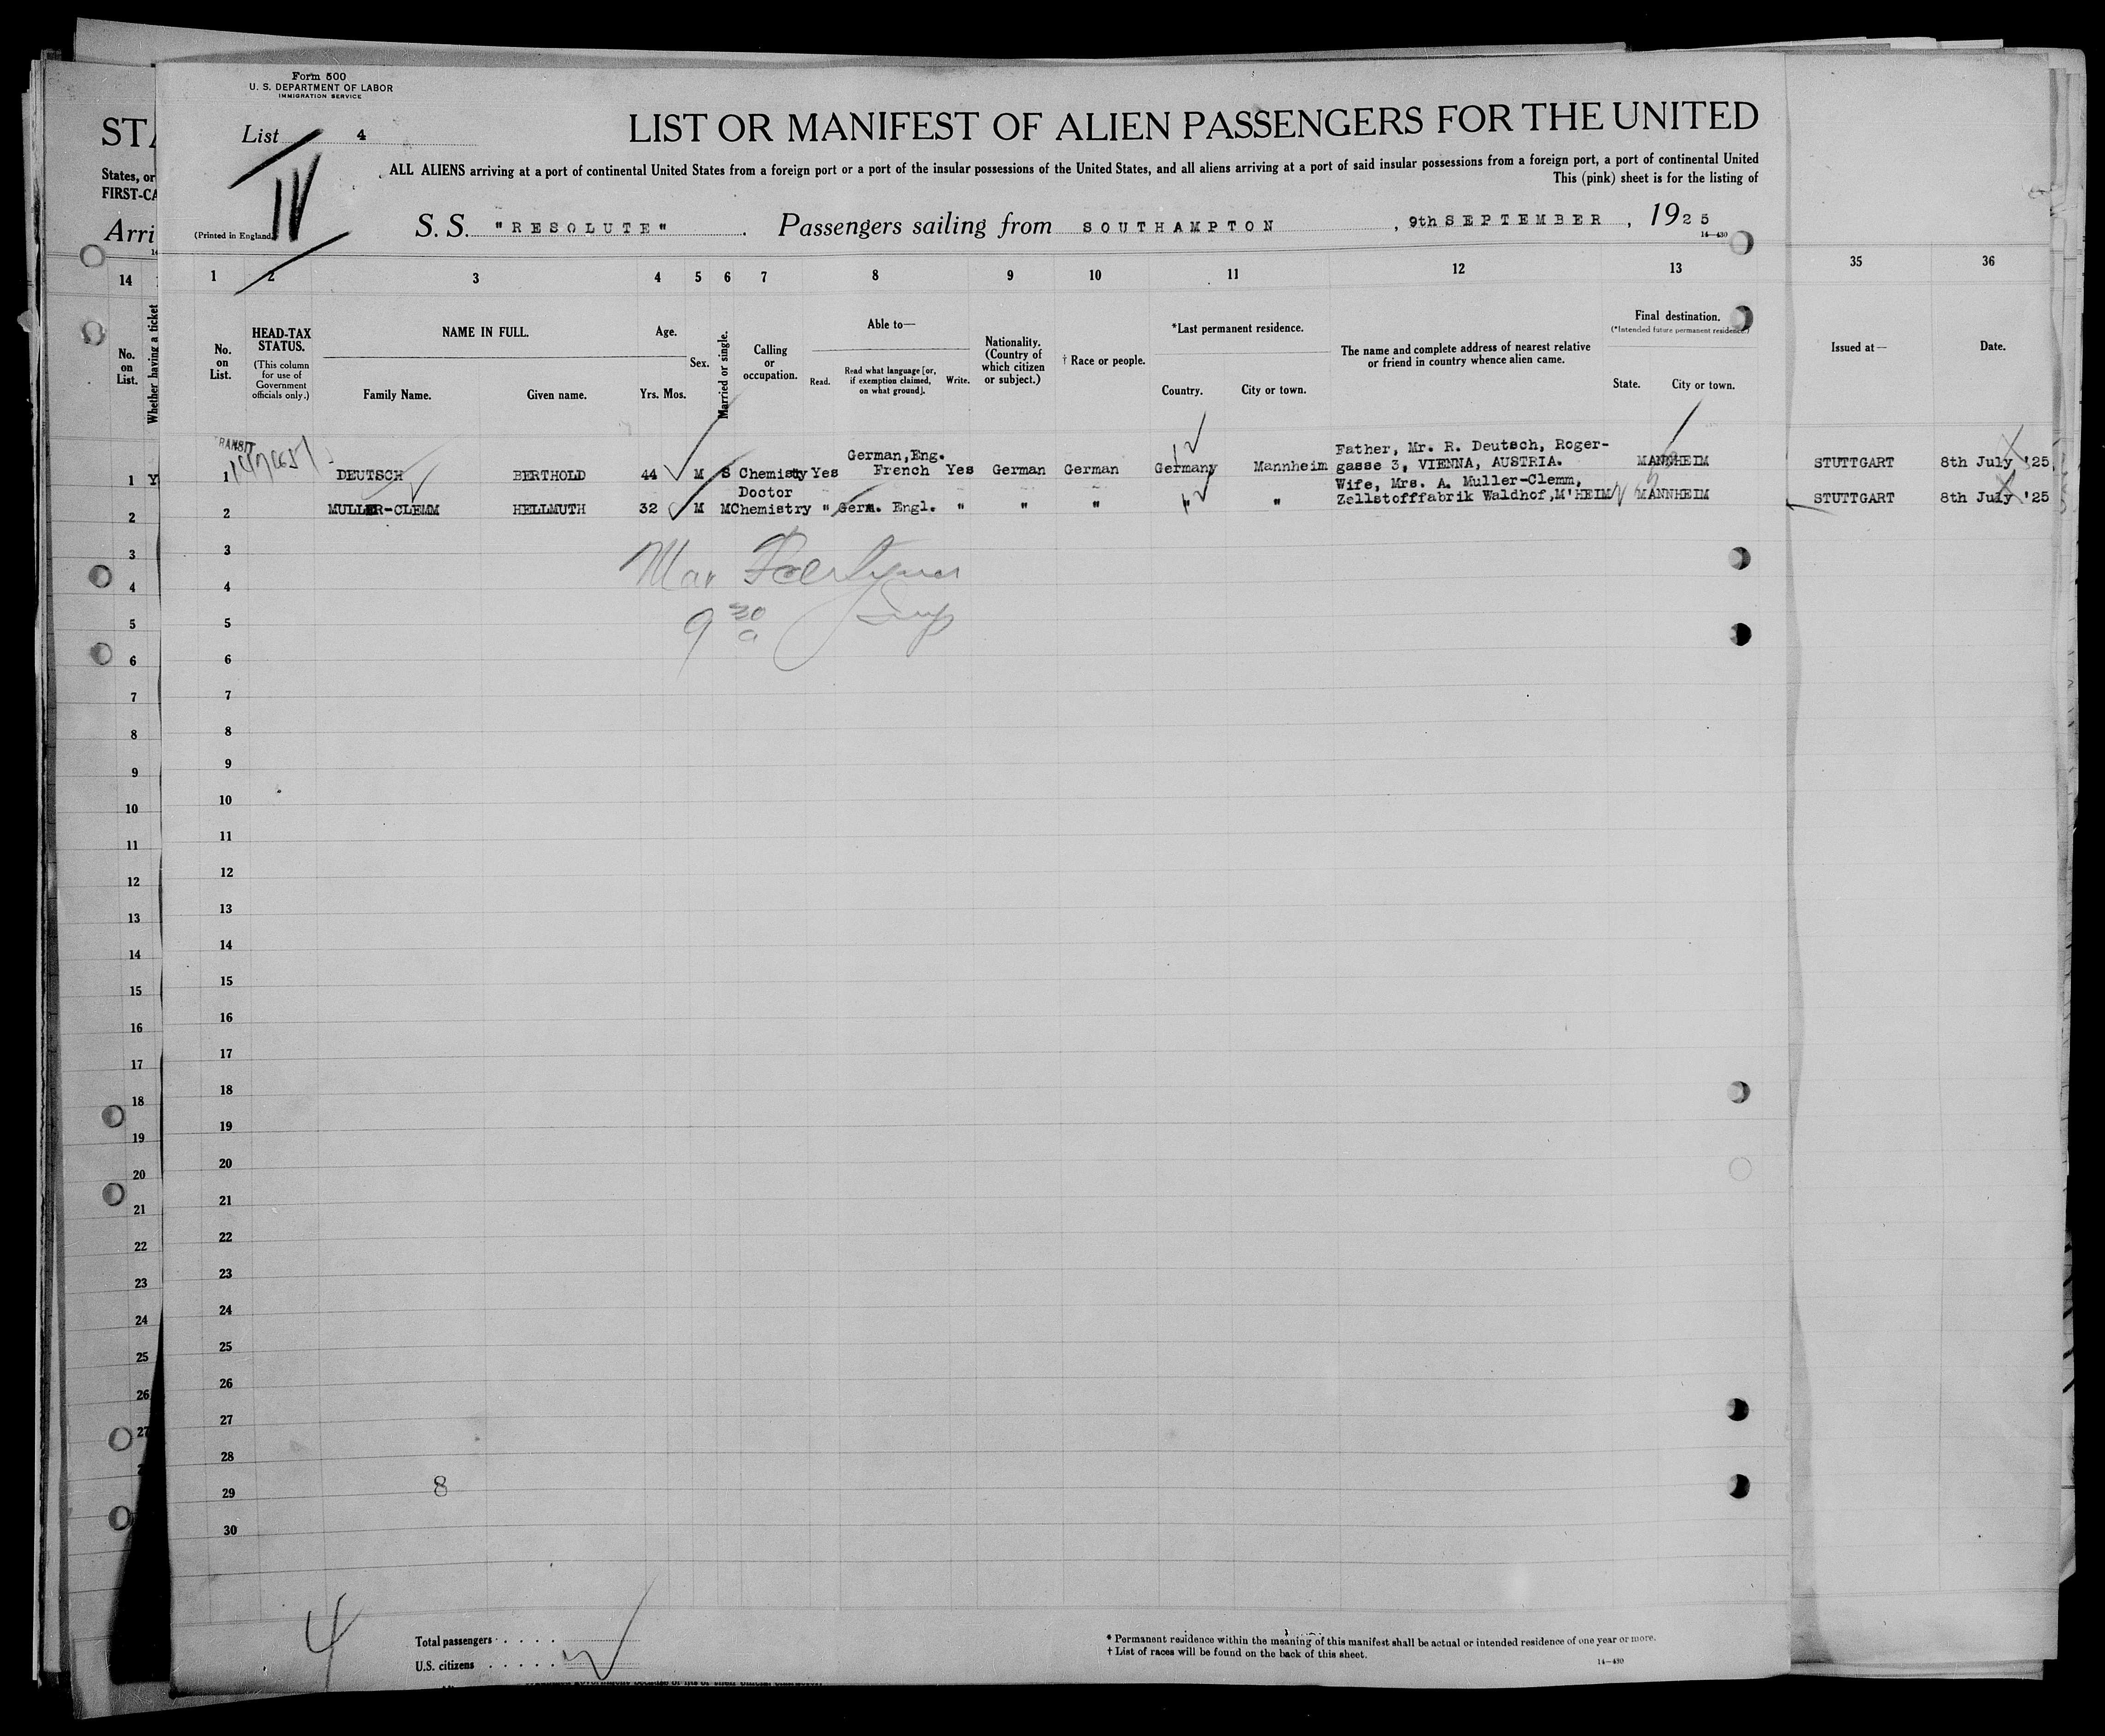 Form 500
U. S. DEPARTMENT OF LABOR
IMMIGRATION SERVICE
List 4
IV
LIST OR MANIFEST OF ALIEN PASSENGERS FOR THE UNITED
ALL ALIENS arriving at a port of continental United States from a foreign port or a port of the insular possessions of the United States, and all aliens arriving at a port of said insular possessions from a foreign port, a port of continental United
This (pink) sheet is for the listing of
STA
States, or
FIRST-CA
Arri
(Printed in England.)
S. S. "RESOLUTE" . Passengers sailing from SOUTHAMPTON , 9th SEPTEMBER , 1925
14—430
14 1 2 3 4 5 6 7 8 9 10 11 12 13 35 36
No. on List.
Whether having a ticket
No. on List.
HEAD-TAX STATUS.
(This column for use of Government officials only.)
NAME IN FULL.
Family Name. Given name.
Age.
Yrs. Mos.
Sex.
Married or single.
Calling or occupation.
Able to—
Read. Read what language [or, if exemption claimed, on what ground]. Write.
Nationality. (Country of which citizen or subject.)
† Race or people.
*Last permanent residence.
Country. City or town.
The name and complete address of nearest relative or friend in country whence alien came.
Final destination.
(*Intended future permanent residence.)
State. City or town.
Issued at—
Date.
TRANSIT
German,Eng. Father, Mr. R. Deutsch, Roger-
1 Y 1 DEUTSCH BERTHOLD 44 M S Chemisty Yes French Yes German German Germany Mannheim gasse 3, VIENNA, AUSTRIA. MANNHEIM STUTTGART 8th July '25
Doctor Wife, Mrs. A. Muller-Clemm,
2 2 MULLER-CLEMM HELLMUTH 32 M M Chemistry " Germ. Engl. " " " " " Zellstofffabrik Waldhof,M'HEIM MANNHEIM STUTTGART 8th July '25
3 3
4 4
9 30 a
5 5
6 6
7 7
8 8
9 9
10 10
11 11
12 12
13 13
14 14
15 15
16 16
17 17
18 18
19 19
20 20
21 21
22 22
23 23
24 24
25 25
26 26
27 27
28
8
29
30
4
Total passengers . . . . .
U.S. citizens . . . . .
* Permanent residence within the meaning of this manifest shall be actual or intended residence of one year or more.
† List of races will be found on the back of this sheet.
14—430